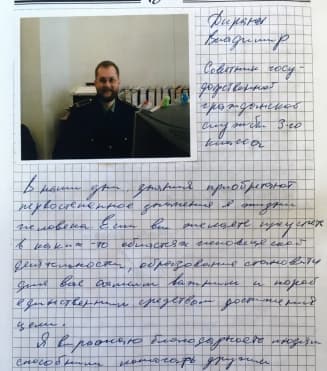 Владимир
Советник госу-
дарственной
гражданской
службы 3-го
класса
В наши дни, знания приобретают
первостепенное значения в жизни
человека Если вы желаете преуспеть
в каких-то областях человеческой
деятельности, образование становится
для вас самым важным и порой
единственным средством достижения
цели.
Я выражаю благодарность людям
способным помогать другим